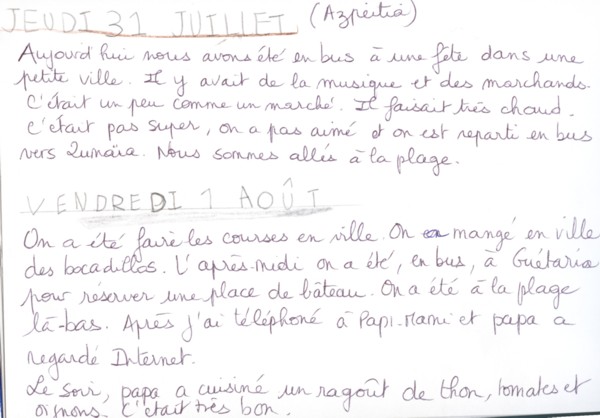 JEUDI 31 JUILLET (Azpeitia)
Aujourd'hui nous avons été en bus à une fête dans une
petite ville. Il y avait de la musique et des marchands.
C'était un peu comme un marché. Il faisait très chaud.
C'était pas super, on a pas aimé et on est reparti en bus
vers Zumaïa. Nous sommes allés à la plage.
VENDREDI 1 AOÛT
On a été faire les courses en ville. On a mangé en ville
des bocadillos. L'après-midi on a été, en bus, à Guétaria
pour réserver une place de bâteau. On a été à la plage
là-bas. Après j'ai téléphoné à Papi-Mami et papa a
regardé Internet.
Le soir, papa a cuisiné un ragoût de thon, tomates et
oignons. C'était très bon.